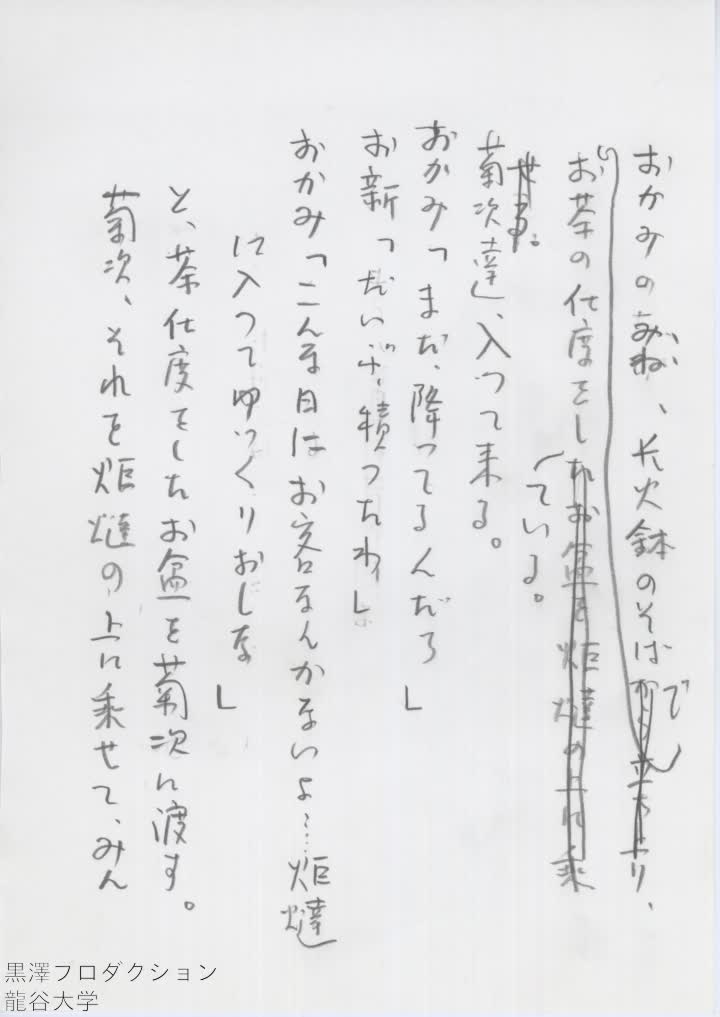 おかみのみね、長火鉢のそばから立ち上り、
で
お茶の仕度をしたお盆を炬燵の上に乗
ている。
せる。
菊次達、入って来る。
おかみ「まだ、降ってるんだろ」
お新「だいぶ積ったわ」
おかみ「こんな日はお客なんかないよ…炬燵
に入ってゆっくりおしな」
と、茶仕度をしたお盆を菊次に渡す。
菊次、それを炬燵の上に乗せて、みん
黒澤プロダクション
龍谷大学